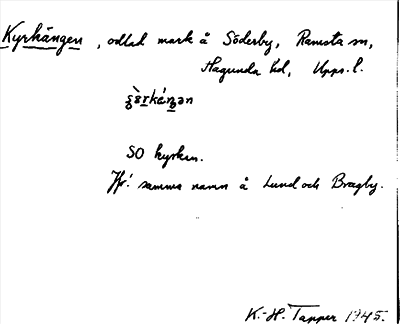 Kyrkängen, odlad mark å Söderby, Ramsta sn,
Hagunda hd, Upps. l.
SO kyrkan.
Jfr. samma namn å Lund och Bragby.
K.-H. Tapper 1945.